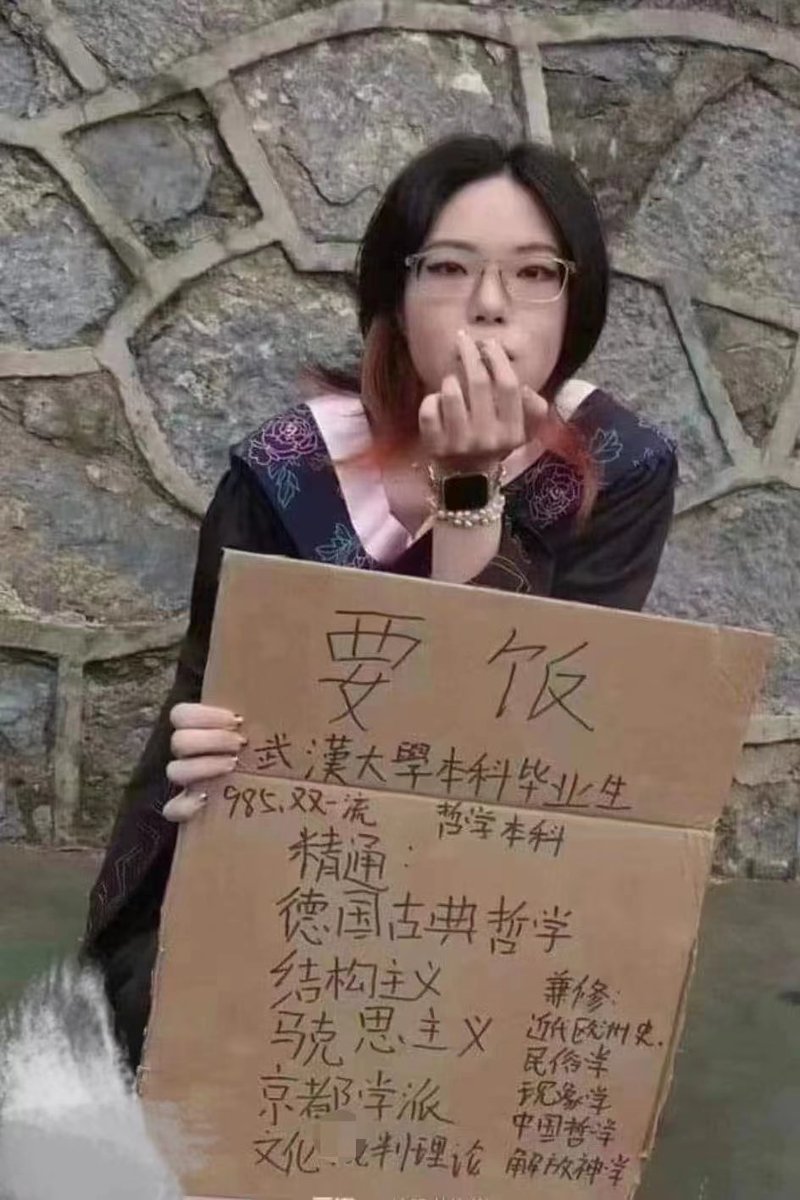 要饭
武漢大學本科毕业生
985.双一流 哲学本科
精通：
德国古典哲学
结构主义
马克思主义
京都学派
文化 判理论
兼修：
近代欧洲史.
民俗学
现象学
中国哲学
解放神学